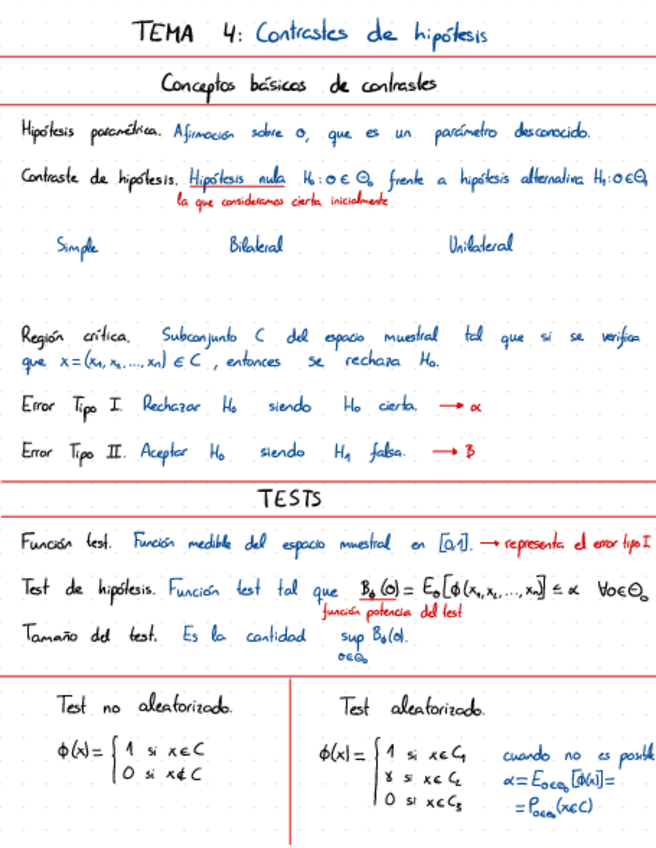 TEMA 4: Contrastes de hipótesis
Conceptos básicos de contrastes
Hipótesis paramétrica. Afirmación sobre θ, que es un parámetro desconocido.
Contraste de hipótesis. Hipótesis nula H₀: θ ∈ Θ₀ frente a hipótesis alternativa H₁: θ ∈ Θ₁
la que consideramos cierta inicialmente
Simple Bilateral Unilateral
Región crítica. Subconjunto C del espacio muestral tal que si se verifica
que x = (x₁, x₂, ..., xₙ) ∈ C, entonces se rechaza H₀.
Error Tipo I. Rechazar H₀ siendo H₀ cierta. → α
Error Tipo II. Aceptar H₀ siendo H₁ falsa. → β
TESTS
Función test. Función medible del espacio muestral en [0,1]. → representa el error tipo I
Test de hipótesis. Función test tal que β_ϕ(θ) = E_θ[ϕ(x₁, x₂, ..., xₙ)] ≤ α ∀θ∈Θ₀
función potencia del test
Tamaño del test. Es la cantidad sup β_ϕ(θ).
θ∈Θ₀
Test no aleatorizado.
ϕ(x) = { 1 si x∈C
0 si x∉C
Test aleatorizado.
ϕ(x) = { 1 si x∈C₁
γ si x∈C₂
0 si x∈C₃
cuando no es posible
α = E_θ∈Θ₀[ϕ(x)] =
= P_θ∈Θ₀(x∈C)